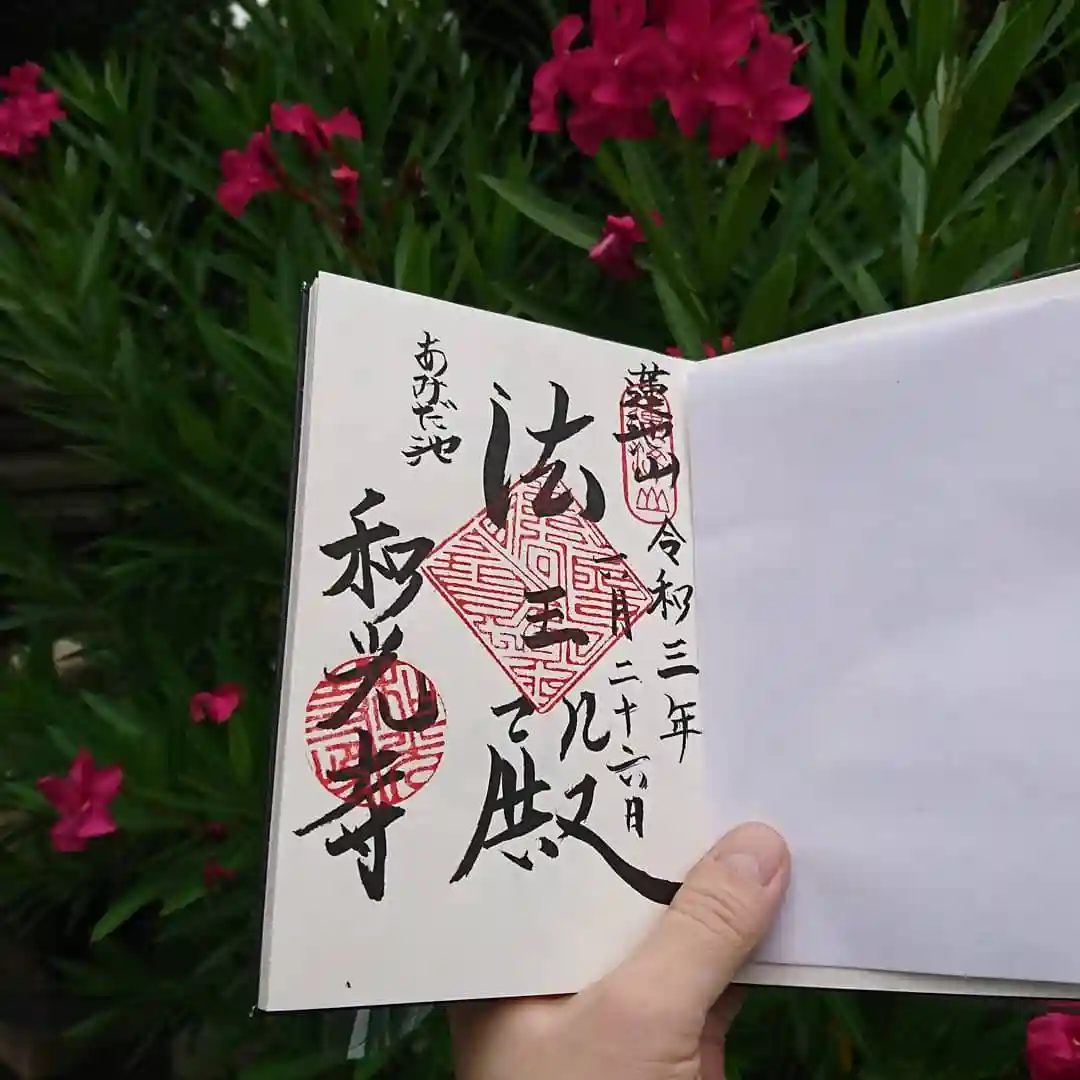 蓮池山
令和三年
六月二十六日
法王殿
あみだ池
和光寺